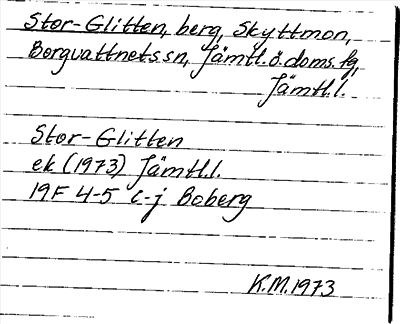 Stor-Glitten, berg, Skyttmon,
Borgvattnets sn, Jämtl.ö.doms.fg,
Jämtl.l.
Stor-Glitten
ek (1973) Jämtl.l.
19F 4-5 c-j Boberg
K.M.1973